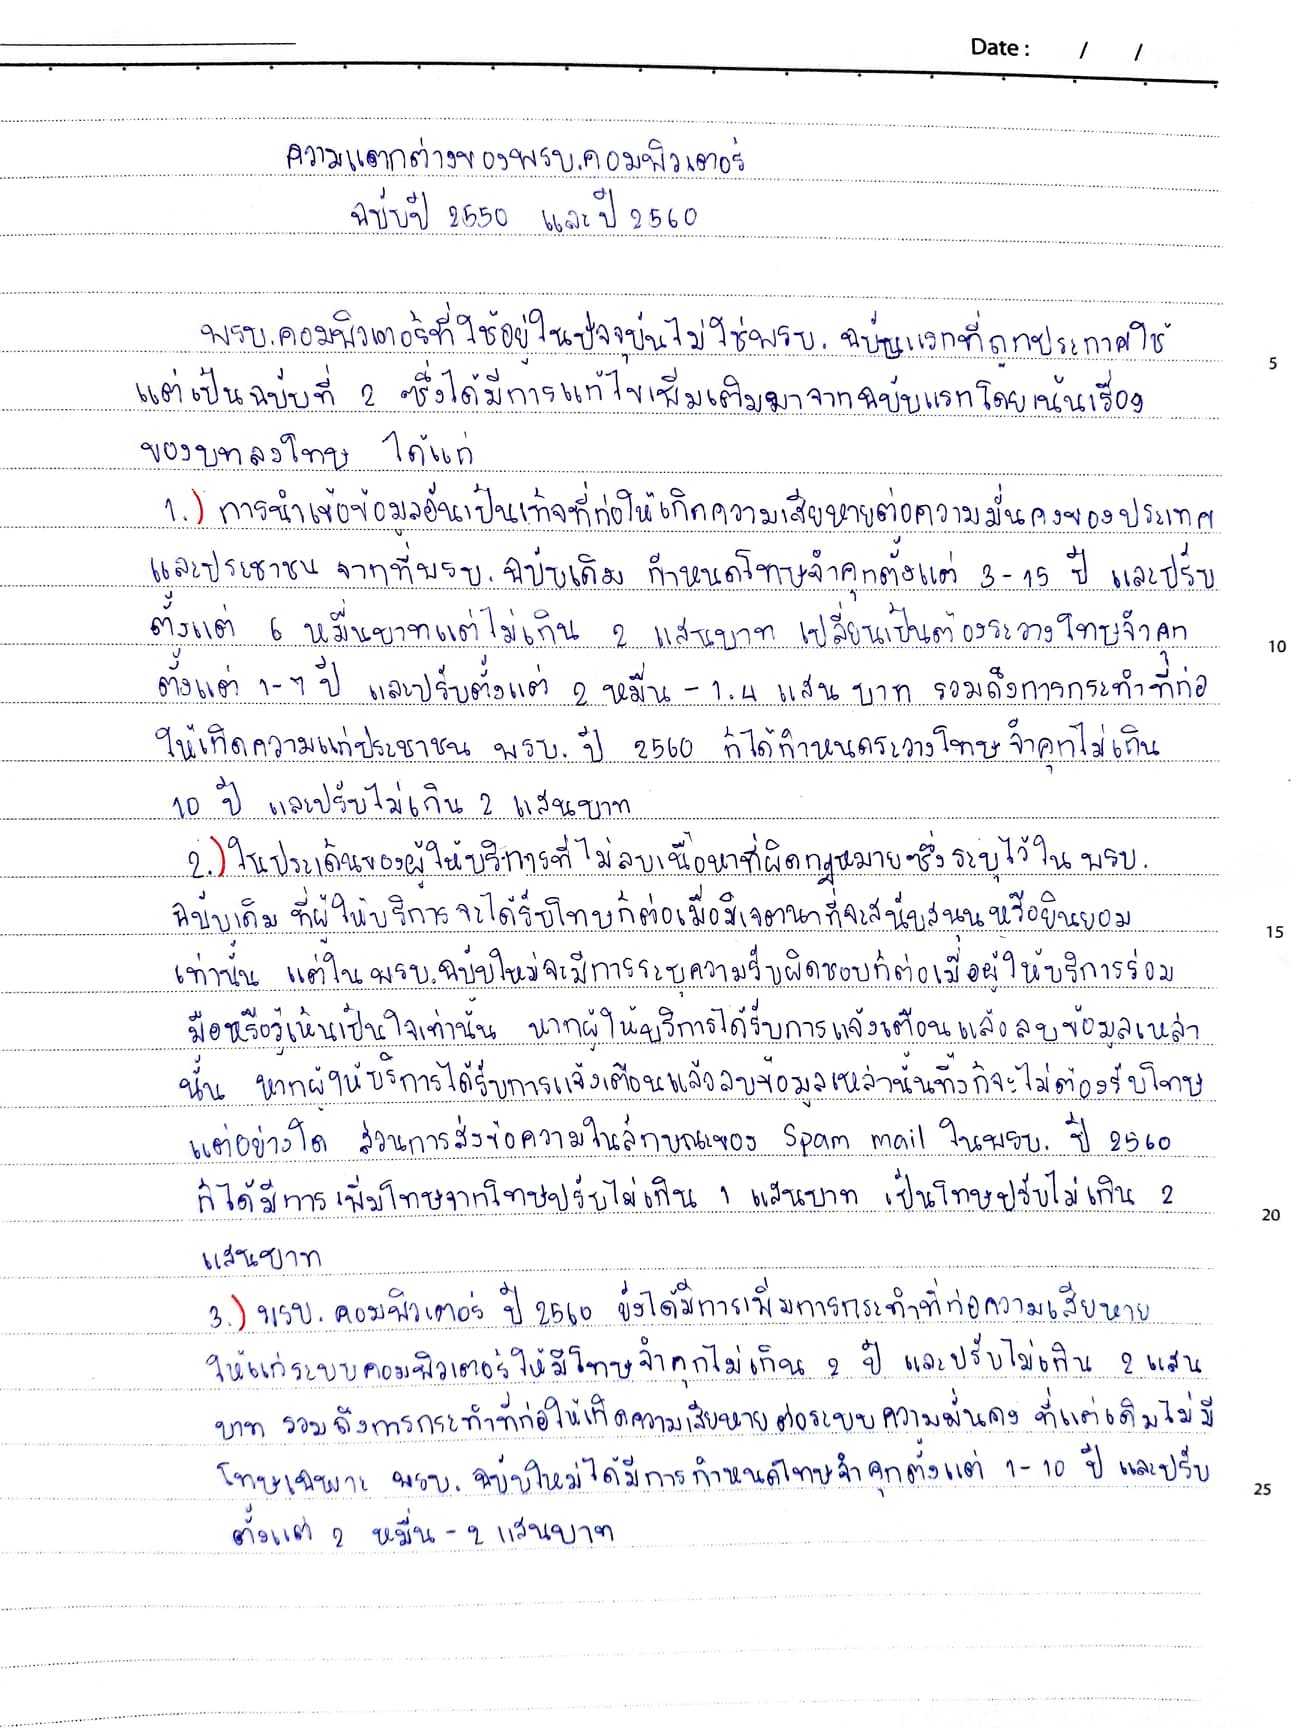 Date : / /
ความแตกต่างของพรบ.คอมพิวเตอร์
ฉบับปี 2550 และปี 2560
พรบ.คอมพิวเตอร์ที่ใช้อยู่ในปัจจุบันไม่ใช่พรบ. ฉบับแรกที่ถูกประกาศใช้
5
แต่เป็นฉบับที่ 2 ซึ่งได้มีการแก้ไขเพิ่มเติมมาจากฉบับแรกโดยเน้นเรื่อง
ของบทลงโทษ ได้แก่
1.) การนำเข้อข้อมูลอันเป็นเท้จที่ก่อให้เกิดความเสียหายต่อความมั่นคงของประเทศ
และประชาชน จากที่พรบ. ฉบับเดิม กำหนดโทษจำคุกตั้งแต่ 3-15 ปี และปรับ
ตั้งแต่ 6 หมื่นบาทแต่ไม่เกิน 2 แสนบาท เปลี่ยนเป็นต้องระวางโทษจำคุก
10
ตั้งแต่ 1-7 ปี และปรับตั้งแต่ 2 หมื่น - 1.4 แสน บาท รวมถึงการกระทำที่ก่อ
ให้เกิดความแก่ประชาชน พรบ. ปี 2560 ก็ได้กำหนดระวางโทษจำคุกไม่เกิน
10 ปี และปรับไม่เกิน 2 แสนบาท
2.) ในประเด็นของผู้ให้บริการที่ไม่ลบเนื้อหาที่ผิดกฎหมายซึ่งระบุไว้ใน พรบ.
ฉบับเดิม ที่ผู้ให้บริการจะได้รับโทษก็ต่อเมื่อมีเจตานาที่จะสนับสนุนหรือยินยอม
15
เท่านั้น แต่ในพรบ.ฉบับใหม่จะมีการระบุความรับผิดชอบก็ต่อเมื่อผู้ให้บริการร่อม
มือหรือรู้เห็นเป็นใจเท่านั้น หากผู้ให้บริการได้รับการแจ้งเตือนแล้ว ลบข้อมูลเหล่า
นั้น หากผู้ให้บริการได้รับการแจ้งเตือนแล้วลบข้อมูลเหล่านั้นทิ้งก็จะไม่ต้องรับโทษ
แต่อย่างใด ส่วนการส่งข้อความในลักษณะของ Spam mail ในพรบ. ปี 2560
ก็ได้มีการเพิ่มโทษจากโทษปรับไม่เกิน 1 แสนบาท เป็นโทษปรับไม่เกิน 2
20
แสนบาท
3.) พรบ. คอมพิวเตอร์ ปี 2560 ยังได้มีการเพิ่มการกระทำที่ก่อความเสียหาย
ให้แก่ระบบคอมพิวเตอร์ให้มีโทษจำคุกไม่เกิน 2 ปี และปรับไม่เกิน 2 แสน
บาท รวมถึงการกระทำที่ก่อให้เกิดความเสียหายต่อระบบความมั่นคง ที่แต่เดิมไม่มี
โทษเฉพาะ พรบ. ฉบับใหม่ได้มีการกำหนดโทษจำคุกตั้งแต่ 1-10 ปี และปรับ
25
ตั้งแต่ 2 หมื่น - 2 แสนบาท